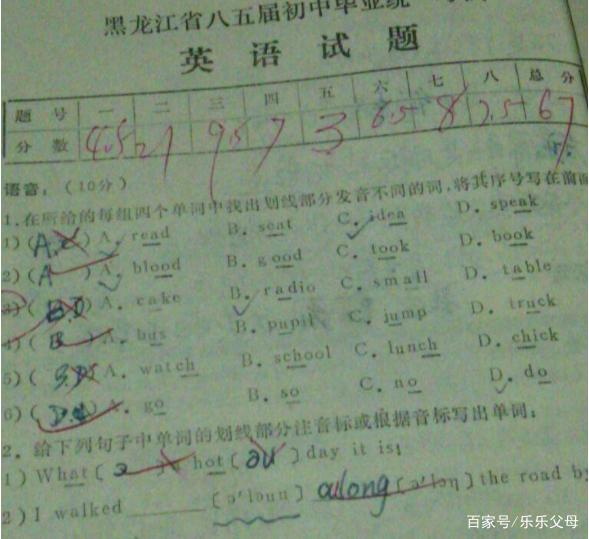 黑龙江省八五届初中毕业统一考试
英语试题
题号 一 二 三 四 五 六 七 八 总分
分数 4.5 21 9.5 7 3 6.5 8 7.5 67
语音:(10分)
1.在所给的每组四个单词中找出划线部分发音不同的词,将其序号写在前面
1) ( A ) A. read B. seat C. idea D. speak
2) ( A ) A. blood B. good C. took D. book
3) ( B ) A. cake B. radio C. small D. table
4) ( B ) A. bus B. pupil C. jump D. truck
5) ( B ) A. watch B. school C. lunch D. chick
6) ( D ) A. go B. so C. no D. do
2.给下列句子中单词的划线部分注音标或根据音标写出单词:
1) What [ ə ] a hot [ əu ] day it is!
2) I walked [ə'lɔŋ] along [ə'lɔŋ] the road by
百家号/乐乐父母